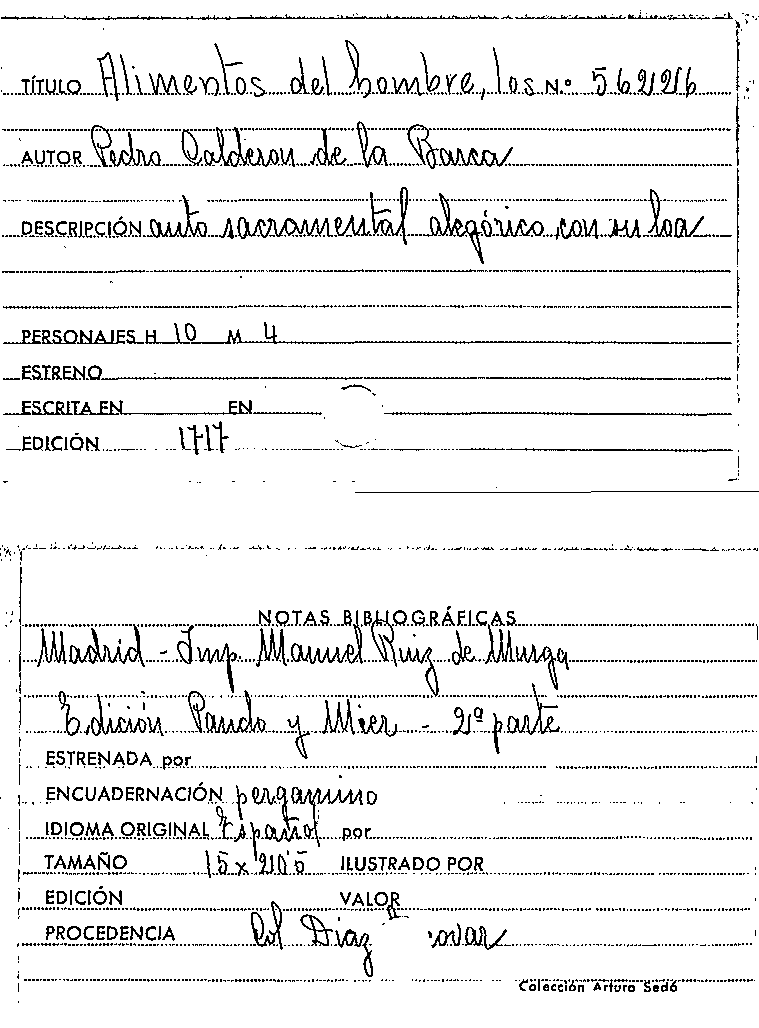 TÍTULO Alimentos del hombre, los N.º 56226
AUTOR Pedro Calderon de la Barca
DESCRIPCIÓN auto sacramental alegórico, con su loa
PERSONAJES H 10 M 4
ESTRENO
ESCRITA EN EN
EDICIÓN 1717
NOTAS BIBLIOGRÁFICAS
Madrid - Imp. Manuel Ruiz de Murga
Edición Pando y Mier - 2ª parte
ESTRENADA por
ENCUADERNACIÓN pergamino
IDIOMA ORIGINAL Español por
TAMAÑO 15 x 20'5 ILUSTRADO POR
EDICIÓN VALOR
PROCEDENCIA Col Diaz
Colección Arturo Sedó